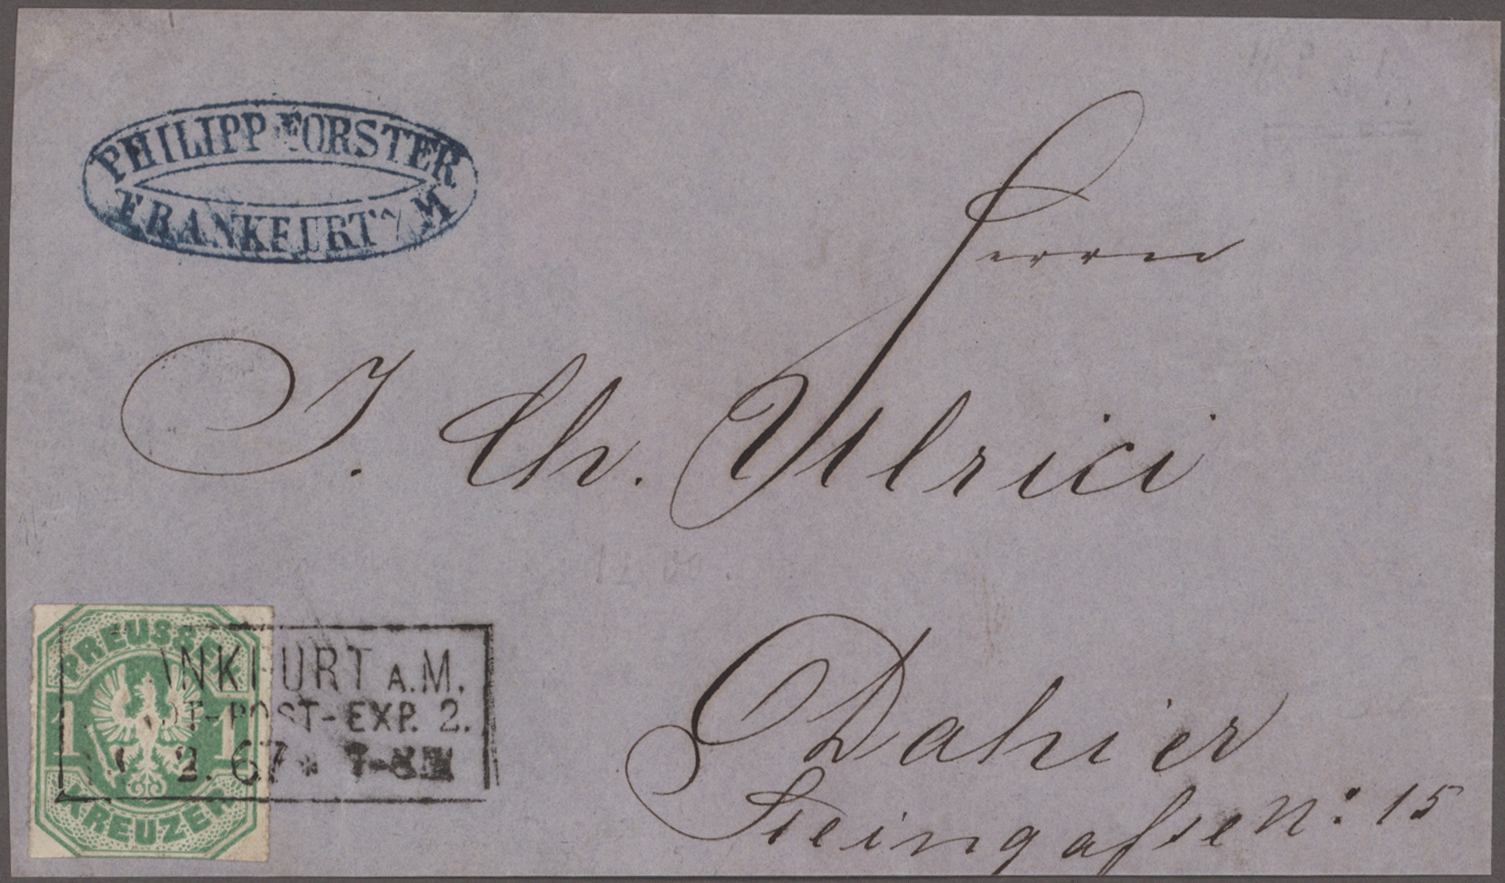 PHILIPP FORSTER
FRANKFURT a/M
Herrn
J. Ch. Ulrici
Dahier
Steingasse No: 15
PREUSSEN
1 1
KREUZER
ANKFURT A.M.
DT-POST-EXP. 2.
2. 67 * 7-8